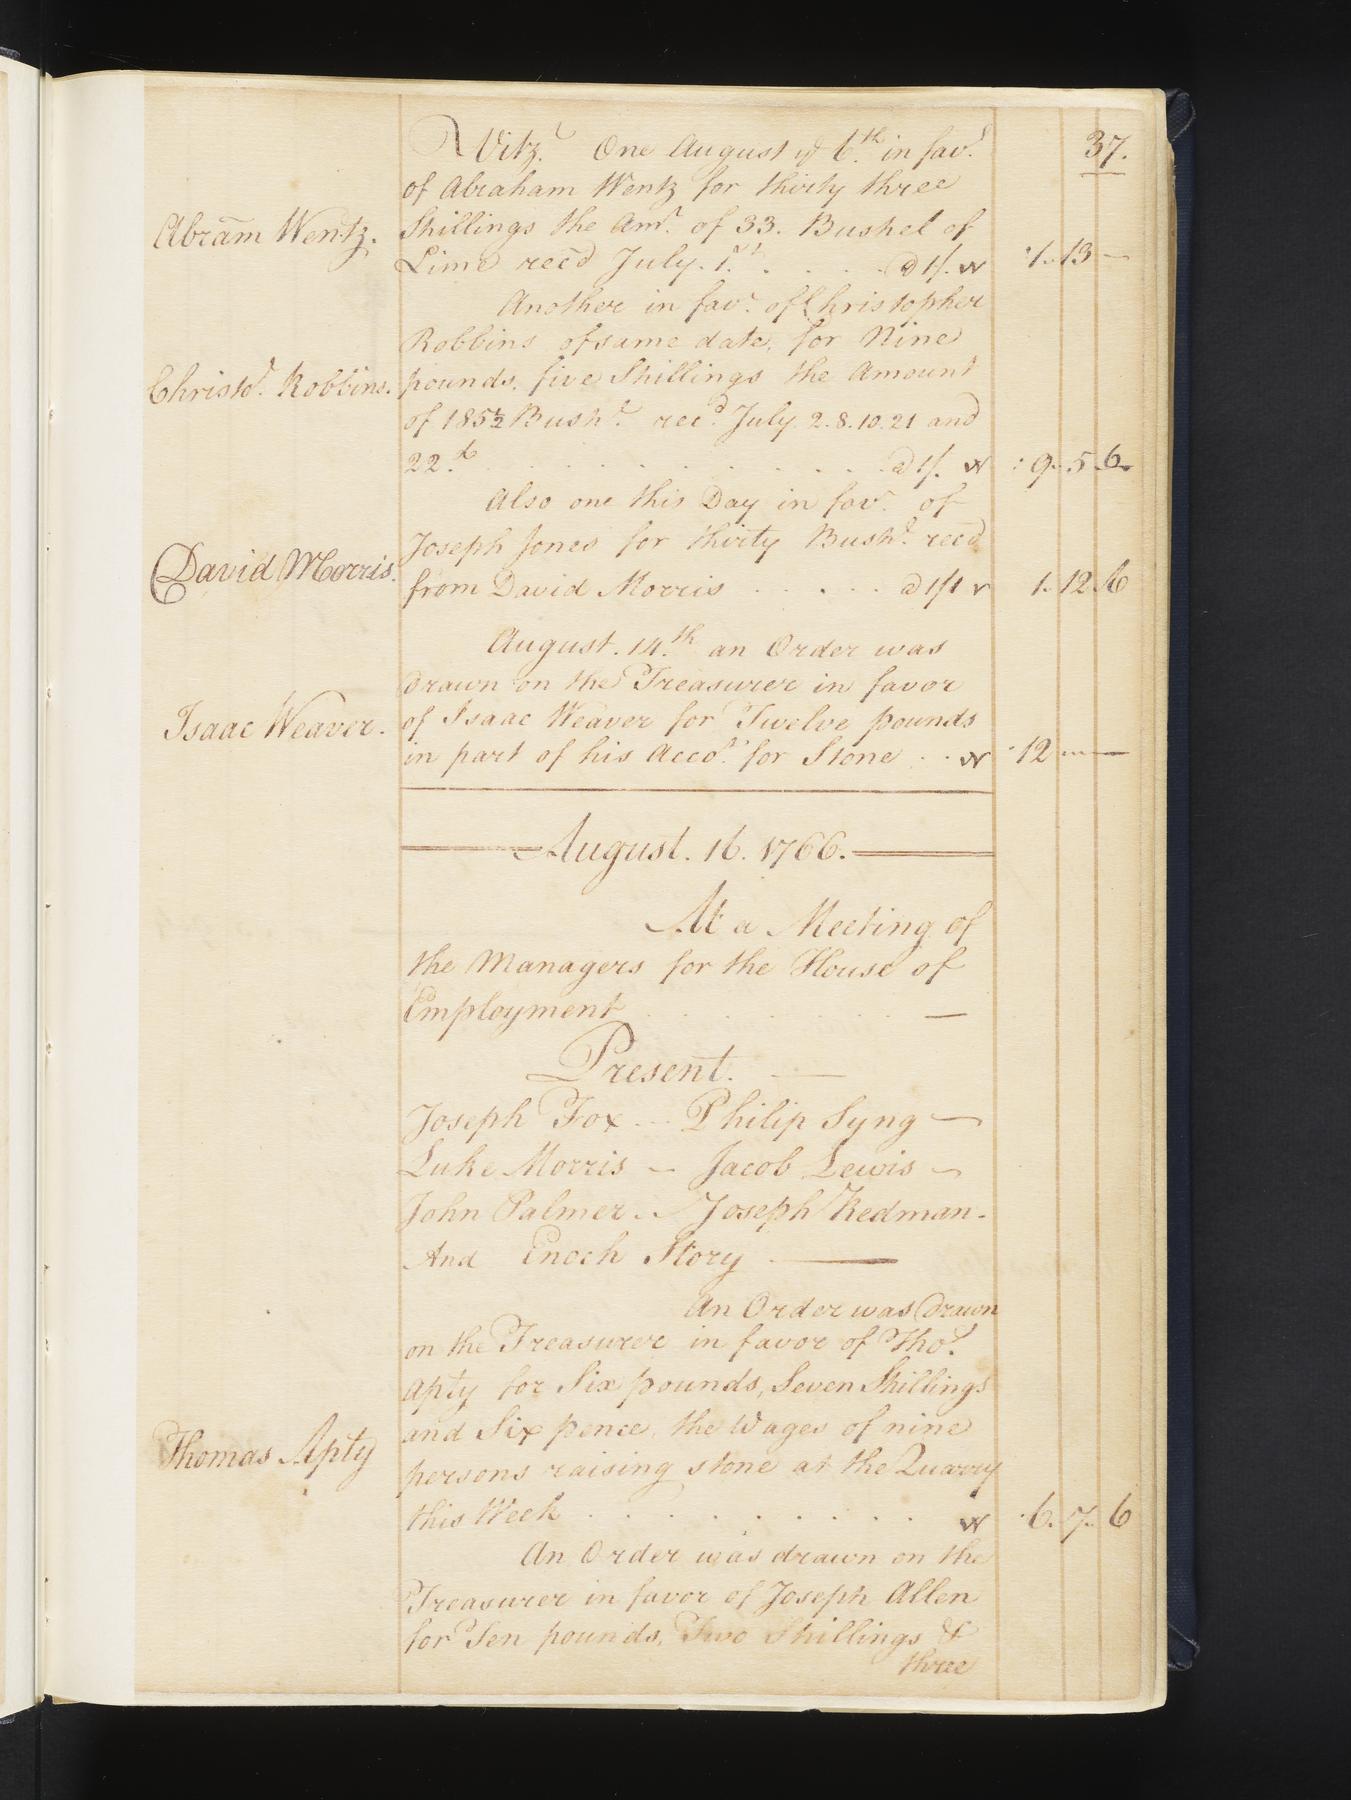 37.
Vitz. One August ye 6th in favr
of Abraham Wentz for thirty three
Abram Wentz.
Shillings the Amt. of 33. Bushel of
Lime rec'd July. 1st . . . . . @ 1/. 1. 13 —
Another in favr. of Christopher
Robbins of same date, for Nine
Christor. Robbins.
pounds, five Shillings the Amount
of 185½ Bushs. rec'd July 2. 8. 10. 21 and
22.d . . . . . . . . . . @ 1/. : 9. 5. 6.
Also one this Day in favr. of
Joseph Jones for thirty Bushs. rec'd
David Morris.
from David Morris . . . . . @ 1/1 1. 12. 6
August. 14th an Order was
Drawn on the Treasurer in favor
Isaac Weaver.
of Isaac Weaver for Twelve pounds
in part of his Acco.t for Stone . . 12 — —
August. 16. 1766.
At a Meeting of
the Managers for the House of
Employment . . . . . . . . —
Present. —
Joseph Fox — Philip Syng —
Luke Morris — Jacob Lewis —
John Palmer — Joseph Redman.
And Enoch Story —
An Order was Drawn
on the Treasurer in favor of Thos.
Apty for Six pounds, Seven Shillings
and Six pence, the Wages of nine
Thomas Apty
persons raising stone at the Quarry
this Week . . . . . . . . . . 6. 7. 6
An Order was drawn on the
Treasurer in favor of Joseph Allen
for Ten pounds, Two Shillings &
three